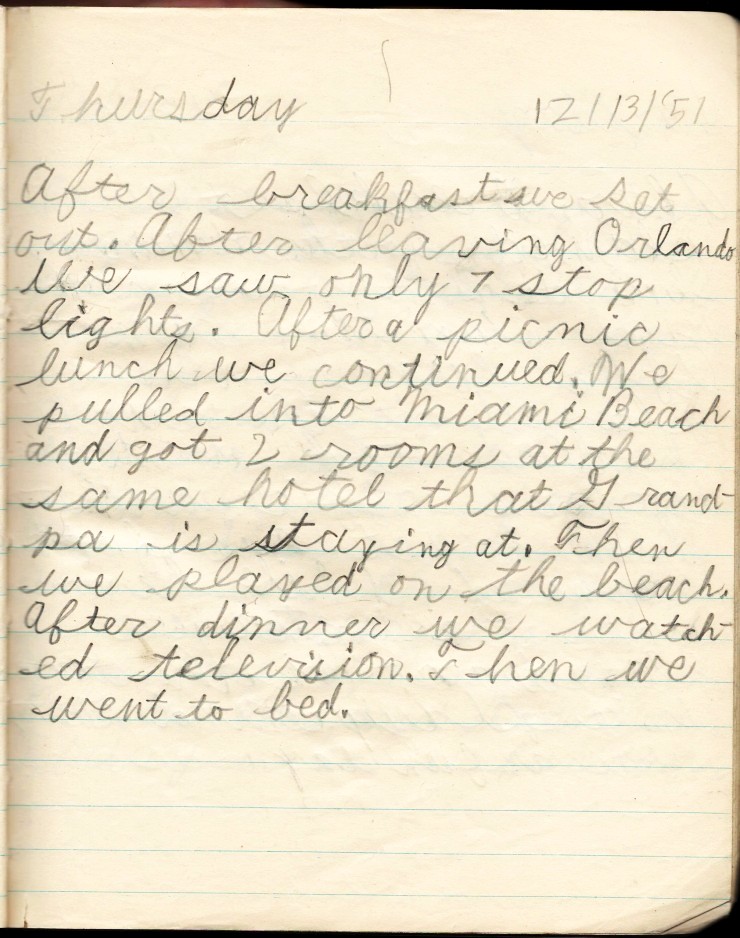 Thursday 12/13/'51
After breakfast we set
out. After leaving Orlando
we saw only 7 stop
lights. After a picnic
lunch we continued. We
pulled into Miami Beach
and got 2 rooms at the
same hotel that Grand-
pa is staying at. Then
we played on the beach.
After dinner we watch-
ed television. Then we
went to bed.